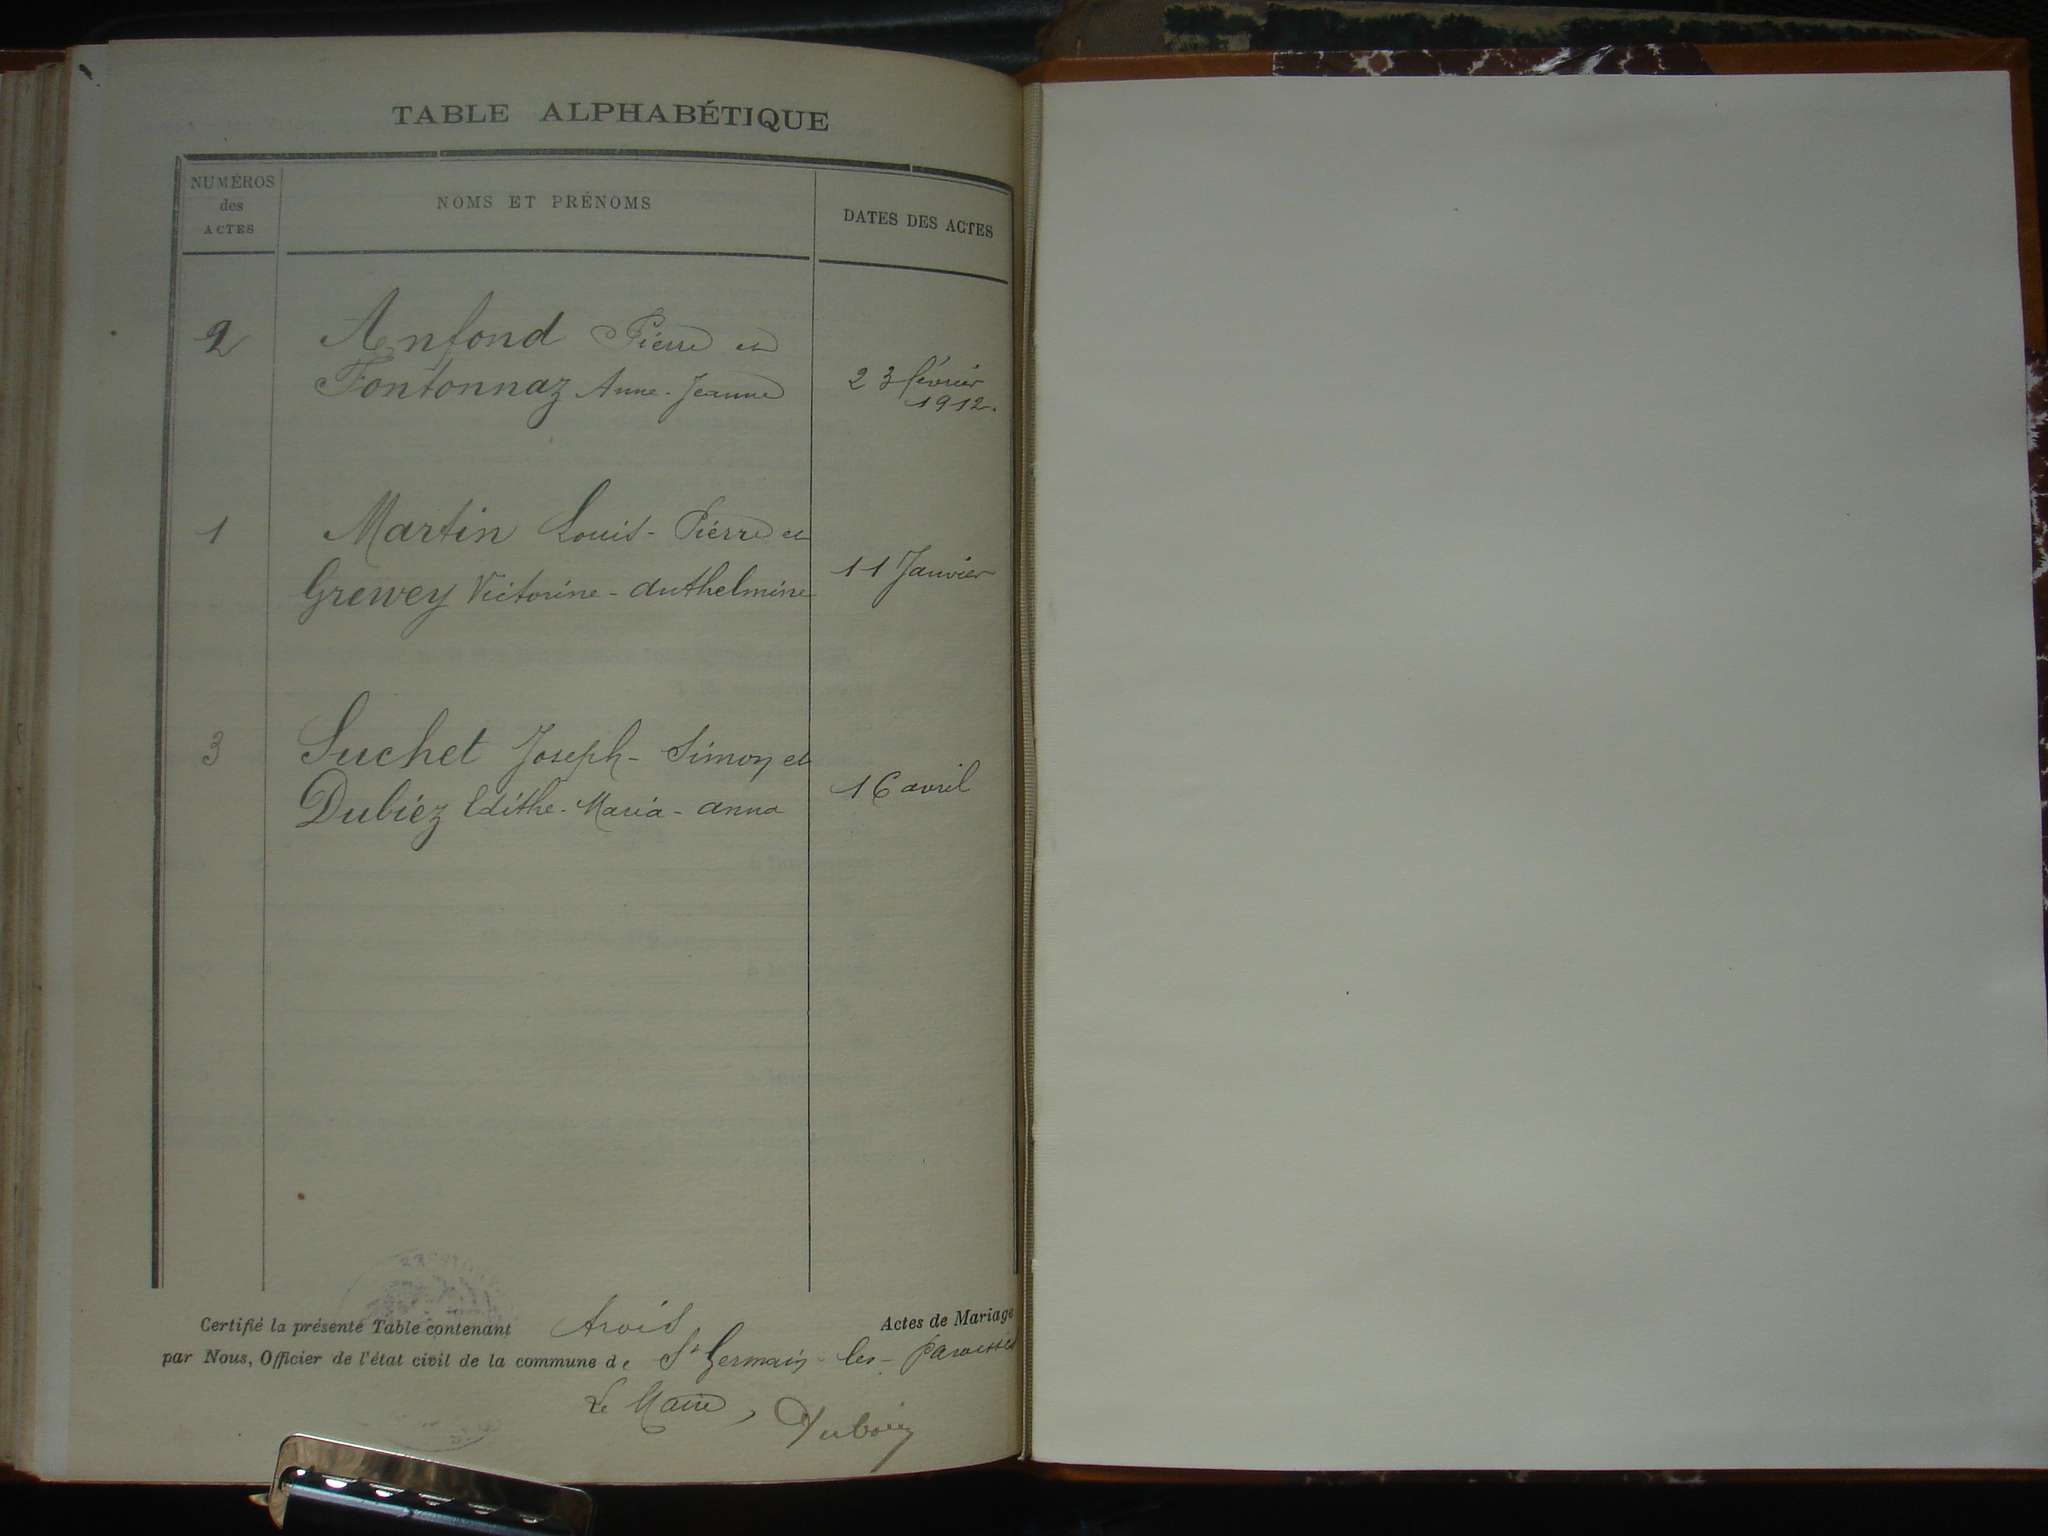 TABLE ALPHABÉTIQUE
NUMÉROS
des
ACTES
NOMS ET PRÉNOMS
DATES DES ACTES
2
Anfond Pierre et
Fontonnaz Anne-Jeanne
23 février
1912.
1
Martin Louis-Pierre et
Grewey Victorine-Anthelmine
11 Janvier
3
Suchet Joseph-Simon et
Dubiez Edithe-Maria-Anna
16 avril
Certifié la présente Table contenant trois Actes de Mariage
par Nous, Officier de l'état civil de la commune de St Germain-les-Paroisses
Le Maire,